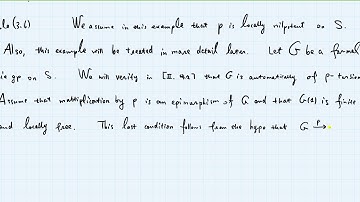 le (3.6) We assume in this example that p is locally nilpotent on S.
Also, this example will be treated in more detail later. Let G be a formal
ie gp on S. We will verify in [II. 4.2] that G is automatically of p-torsion
Assume that multiplication by p is an epimorphism of G and that G(1) is finite
and locally free. This last condition follows from the hypo that G →p